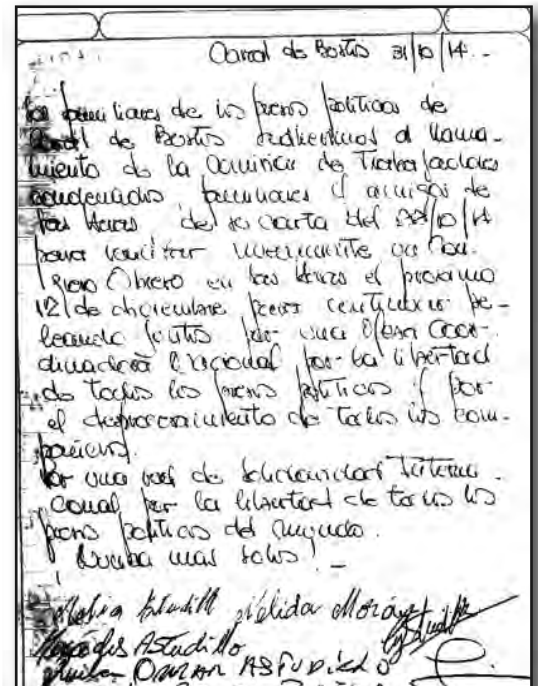 Corral de Bustos 31/10/14.-
Los familiares de los presos políticos de
Corral de Bustos adherimos al llama-
miento de la Comisión de Trabajadores
condenados, familiares y amigos de
Las Heras de la carta del /10/14
para realizar un Con-
greso Obrero en Las Heras el próximo
12/de diciembre para continuar pe-
leando juntos por una Coor-
dinadora Nacional por la libertad
de todos los presos políticos y por
el desprocesamiento de todos los com-
pañeros.
Por una red de solidaridad Interna-
cional por la libertad de todos los
presos políticos del mundo.
¡Nunca mas solos! -
Nélida
Astudillo
OMAR ASTUDILLO